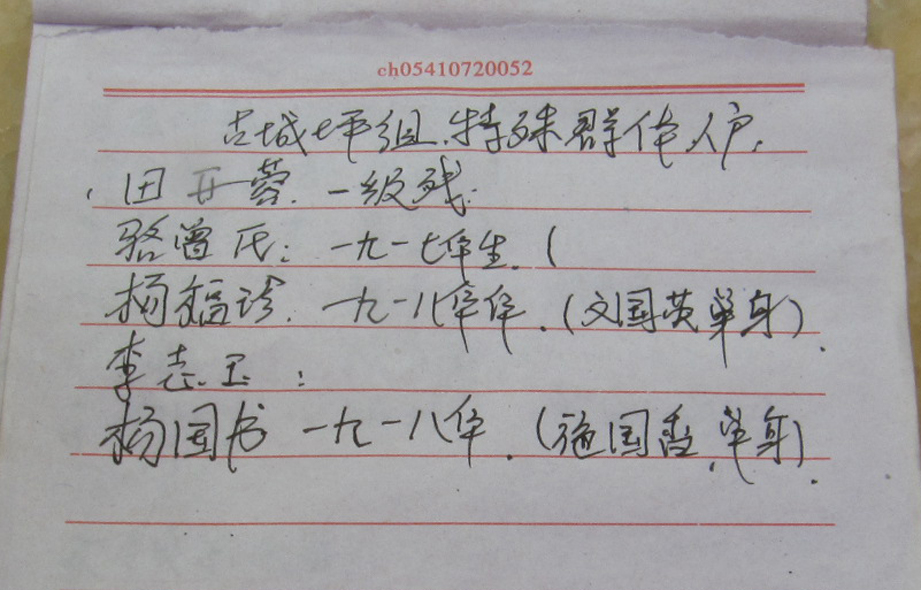 ch05410720052
古城坪组、特殊群体人户.
田开蓉. 一级残.
骆曾氏: 一九一七年生. (
杨福珍. 一九一八年年. (文国英单身).
李志玉:
杨国书 一九一八年. (施国香.单身).